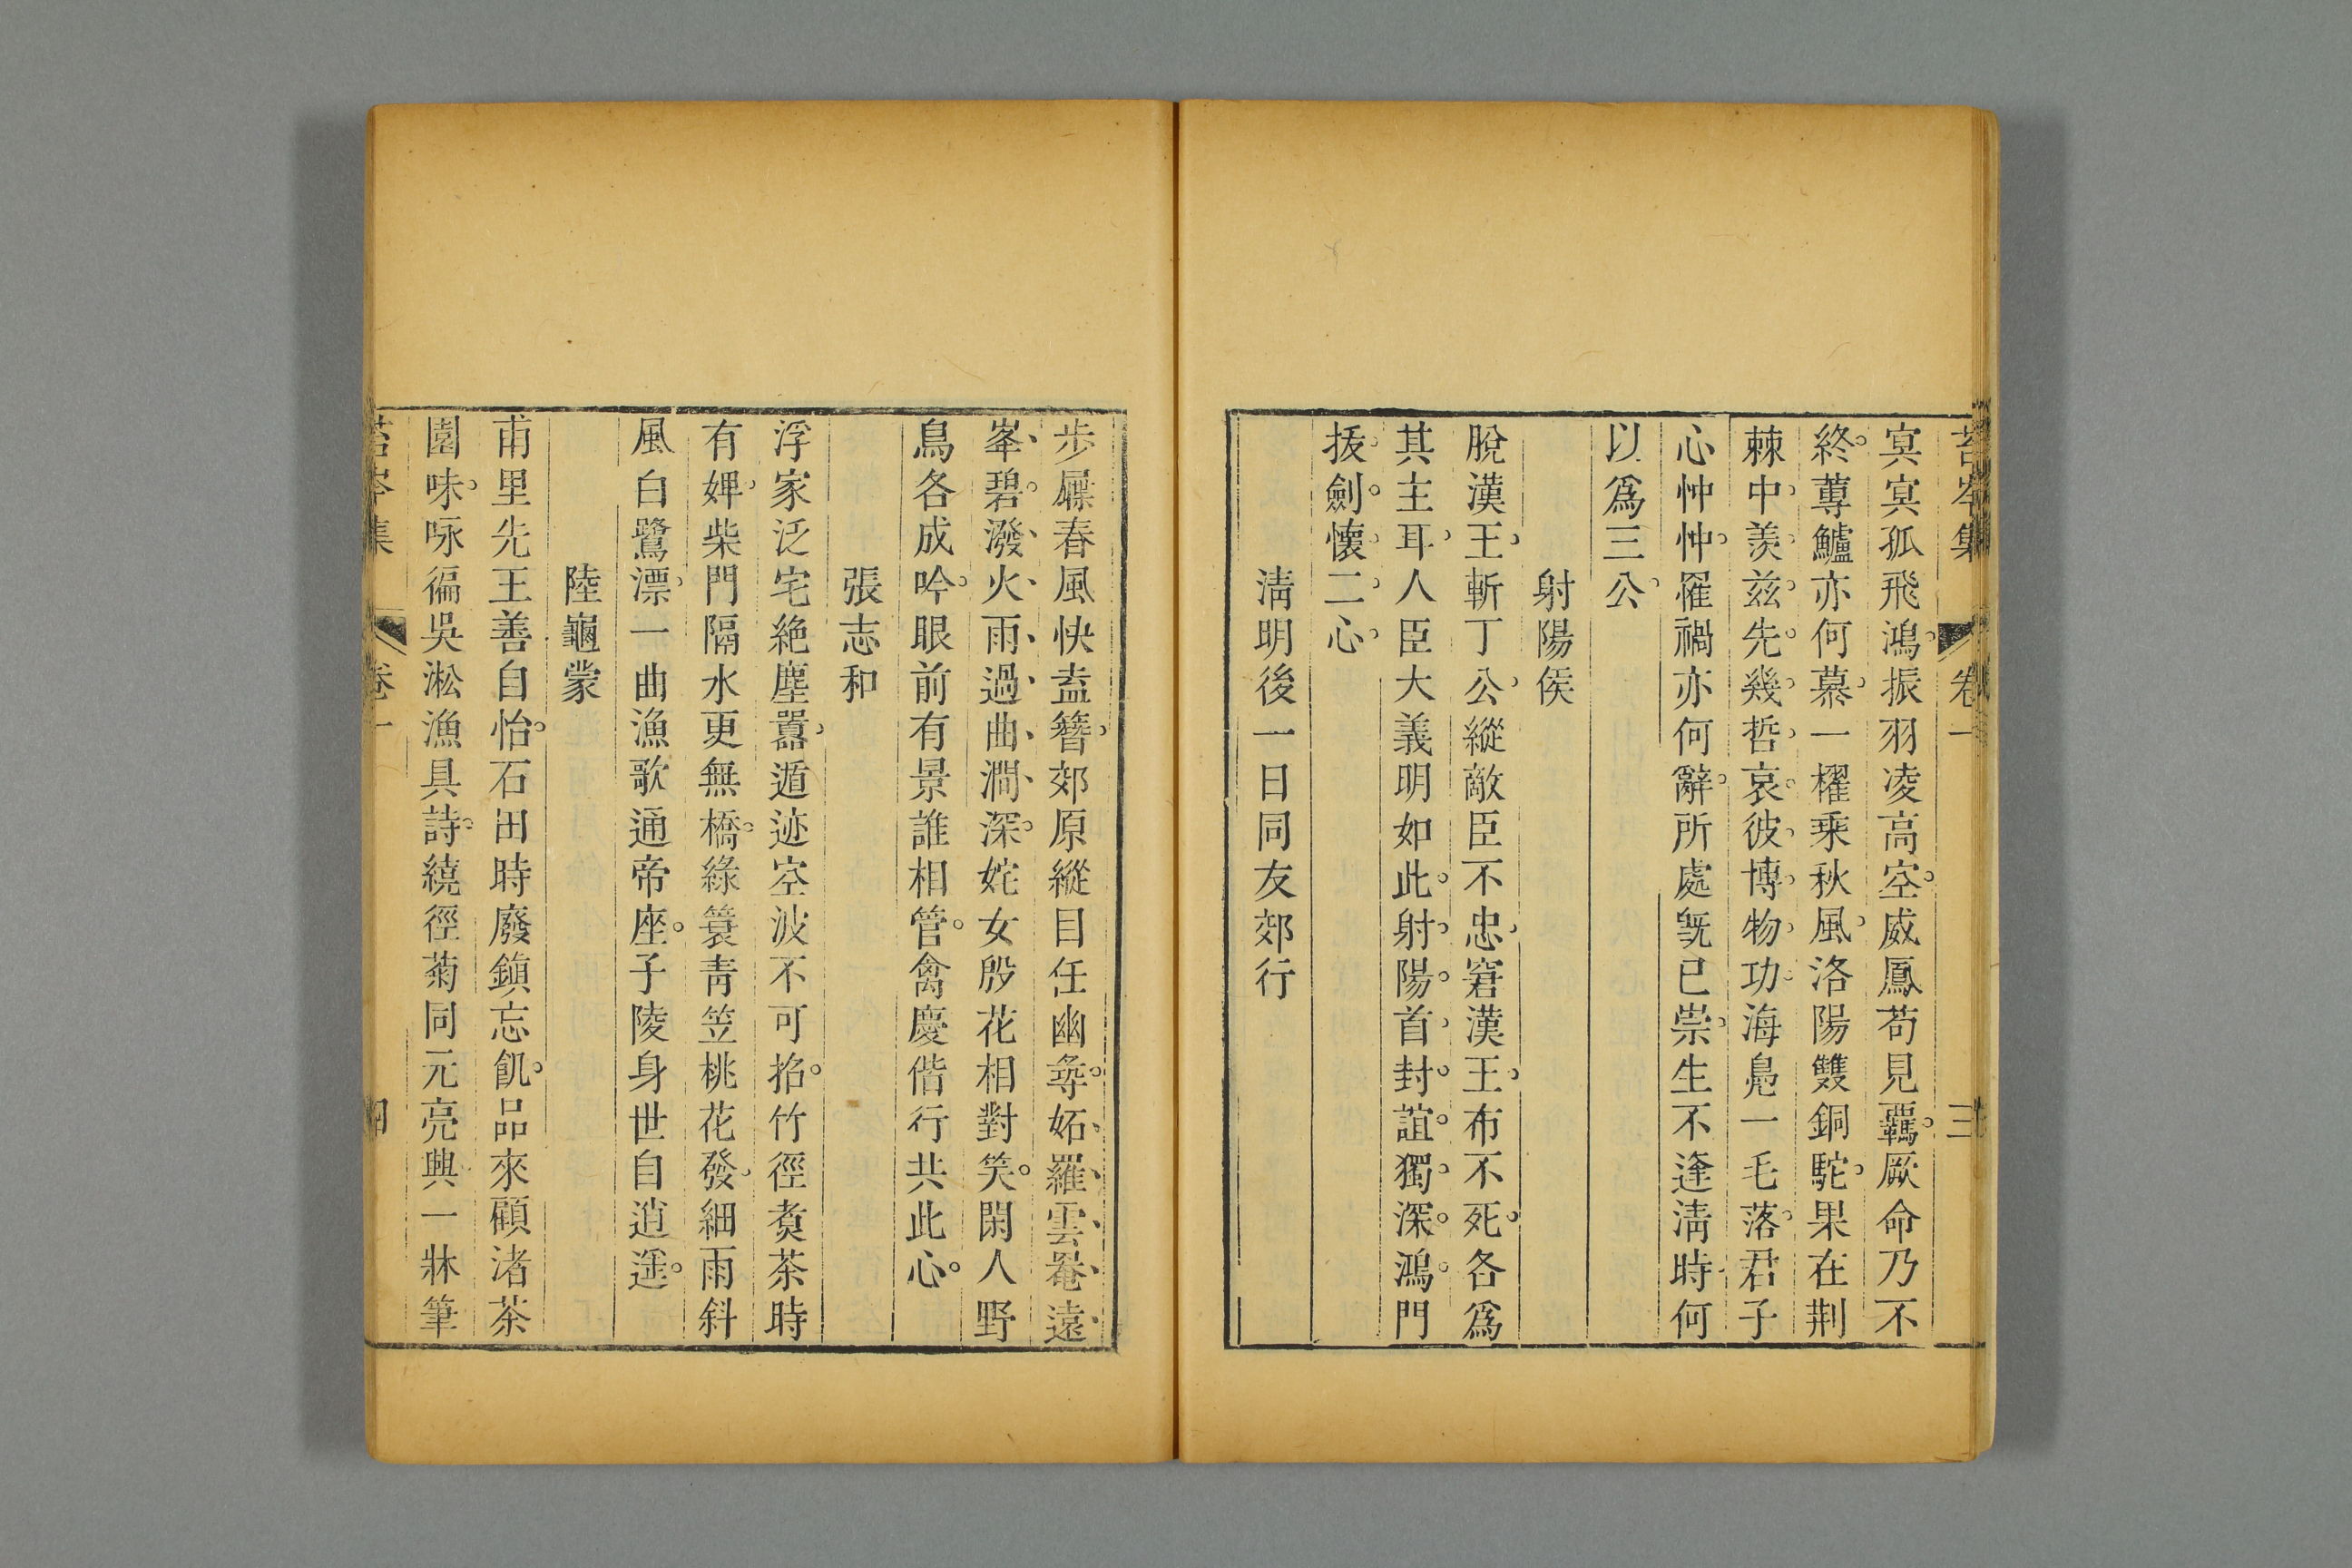 苔岑集 卷一 三
㝠㝠孤飛鴻振羽凌高空威鳳苟見羈厥命乃不
終蓴鱸亦何慕一櫂乘秋風洛陽雙銅駝果在荆
棘中羨兹先幾哲哀彼博物功海鳧一毛落君子
心忡忡罹禍亦何辭所處旣已崇生不逢淸時何
以爲三公
射陽侯
脫漢王斬丁公縱敵臣不忠窘漢王布不死各爲
其主耳人臣大義明如此射陽首封誼獨深鴻門
拔劍懷二心
淸明後一日同友郊行
步屧春風快盍簪郊原縱目任幽㝷妬羅雲罨遠
峯碧潑火雨過曲澗深姹女殷花相對笑閑人野
鳥各成吟眼前有景誰相管禽慶偕行共此心
張志和
浮家泛宅絶塵囂遁迹空波不可招竹徑煑茶時
有婢柴門隔水更無橋綠簑靑笠桃花發細雨斜
風白鷺漂一曲漁歌通帝座子陵身世自逍遥
陸龜蒙
甫里先王善自怡石田時廢鎭忘飢品來顧渚茶
園味咏徧吳淞漁具詩繞徑菊同元亮興一牀筆
苔岑集 卷一 四